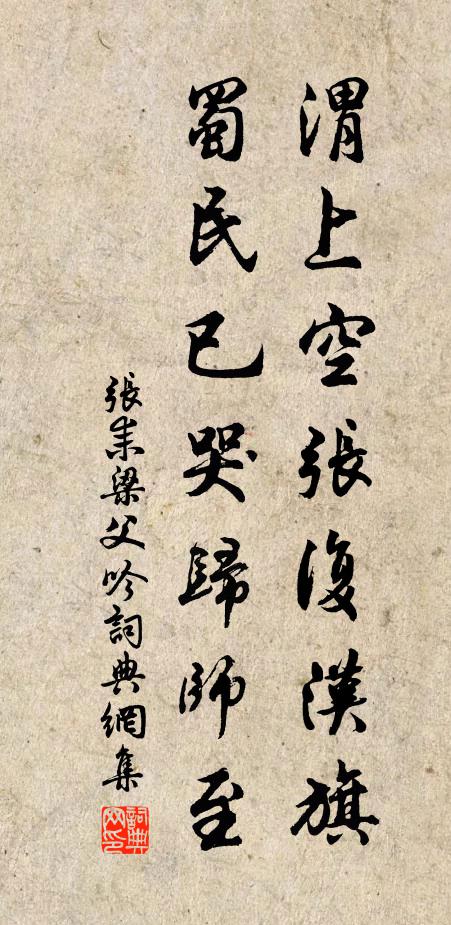 渭上空張復漢旗
蜀民已哭歸師至
張耒梁父吟詞典網集
詞典網印